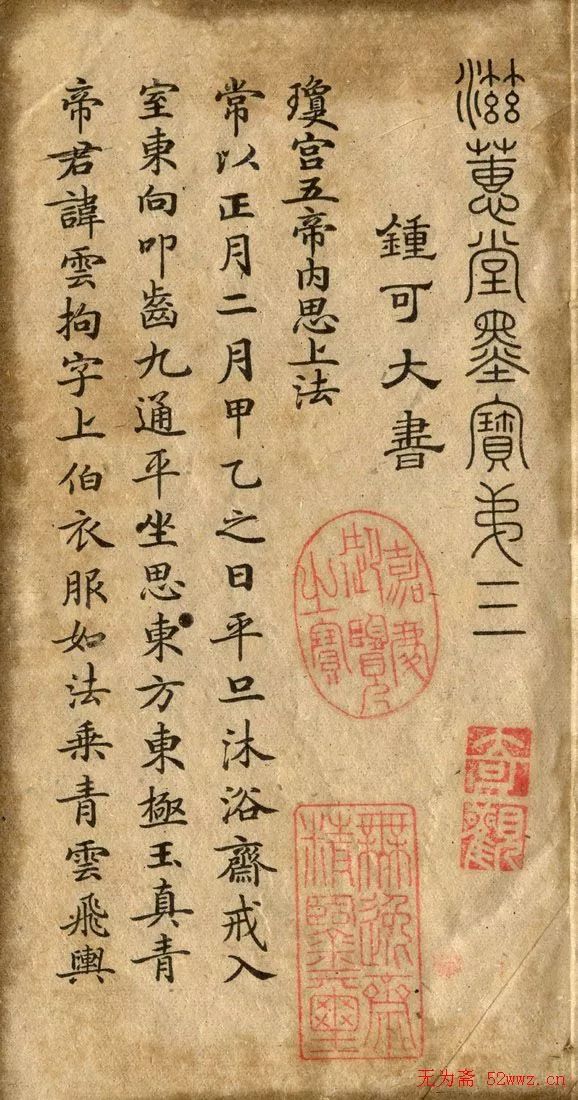 滋蕙堂墨寶弟三
鍾可大書
瓊宮五帝內思上法
常以正月二月甲乙之日平旦沐浴齋戒入
室東向叩齒九通平坐思東方東極玉真青
帝君諱雲拘字上伯衣服如法乘青雲飛輿
嘉慶御覽之寶
大觀
無逸齋精鑒璽
无为斋 52wwz.cn